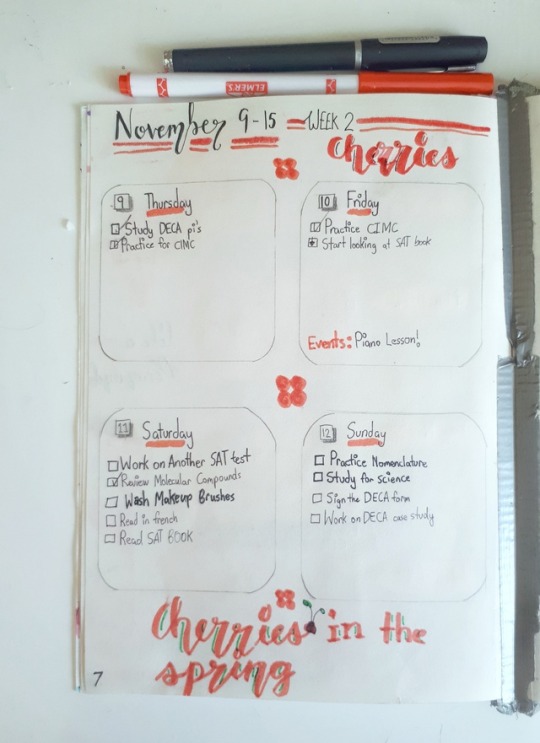 ELMER'S
November 9-15 = WEEK 2
cherries
9 Thursday
Study DECA pi's
Practice for CIMC
10 Friday
Practice CIMC
Start looking at SAT book
Events: Piano Lesson!
11 Saturday
Work on Another SAT test
Review Molecular Compounds
Wash Makeup Brushes
Read in french
Read SAT BOOK
12 Sunday
Practice Nomenclature
Study for science
Sign the DECA form
Work on DECA case study
cherries in the
spring
7